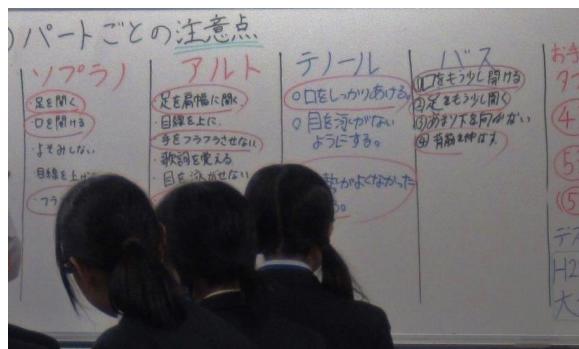 パートごとの注意点
ソプラノ
・足を開く
・口を開ける
・よそみしない
・目線を上げ
・フラ
アルト
・足を肩幅に開く
・目線を上に
・手をフラフラさせない
・歌詞を覚える
・目を泳がせない
テノール
○口をしっかりあける。
○目を泳がない
ようにする。
勢がよくなかった
る。
バス
①口をもう少し開ける
②足をもう少し開く
③あまり下を向かない
④背筋を伸ばす
お手
タ
4
5
5
テス
H2
大